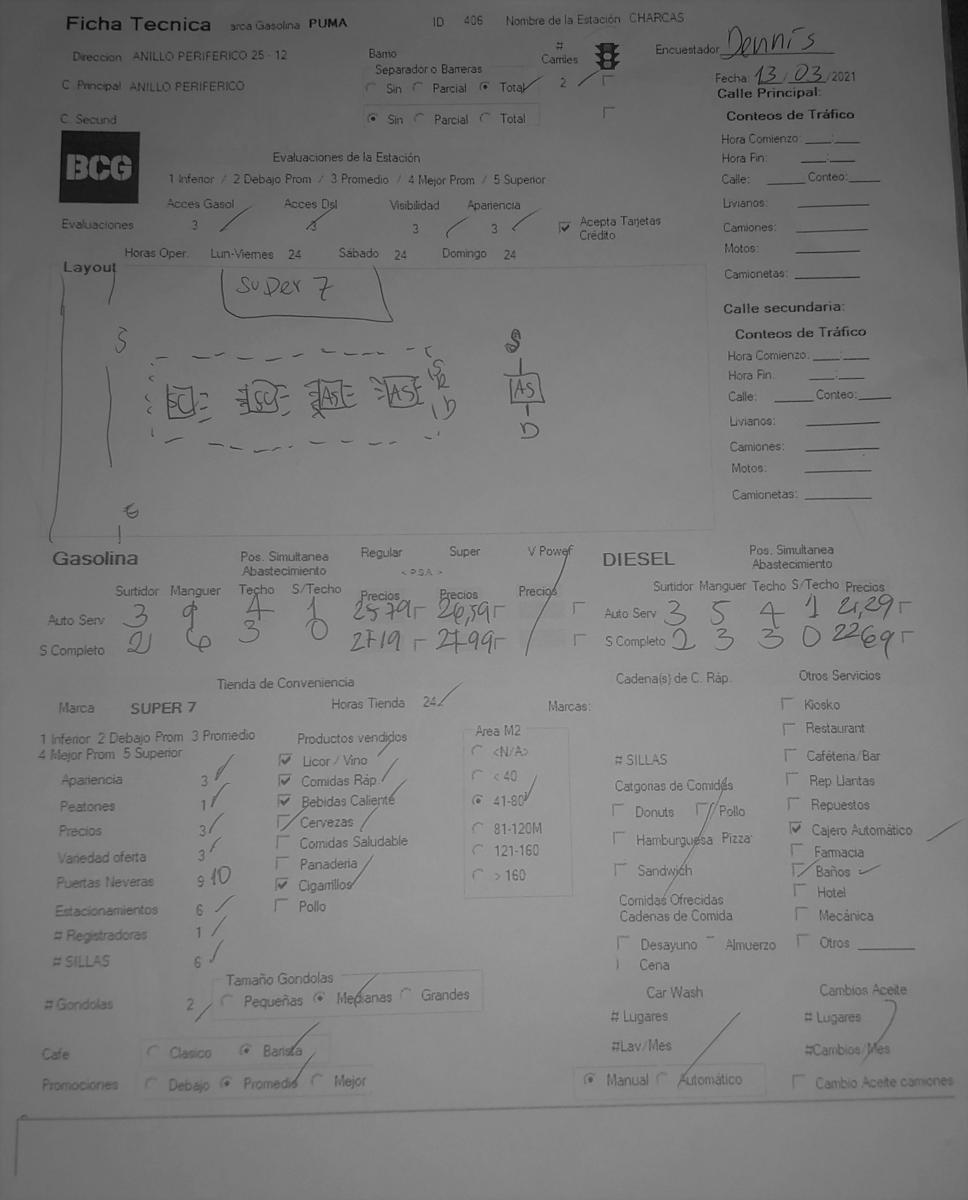 Ficha Tecnica arca Gasolina PUMA ID 406 Nombre de la Estación CHARCAS
Direccion ANILLO PERIFERICO 25 - 12 Barrio # Carriles Encuestador Dennis
Separador o Barreras
C Principal ANILLO PERIFERICO Sin Parcial Total 2 Fecha: 13 / 03 / 2021
Calle Principal:
C. Secund Sin Parcial Total Conteos de Tráfico
BCG
Hora Comienzo: ___:___
Evaluaciones de la Estación Hora Fin: ___:___
1 Inferior / 2 Debajo Prom / 3 Promedio / 4 Mejor Prom / 5 Superior Calle: ____ Conteo:____
Acces Gasol Acces Dsl Visibilidad Apariencia Livianos:
Evaluaciones 3 3 3 3 Acepta Tarjetas Crédito Camiones:
Horas Oper. Lun-Viernes 24 Sábado 24 Domingo 24 Motos:
Layout Camionetas:
Super 7
Calle secundaria:
S S Conteos de Tráfico
Hora Comienzo: ___:___
Hora Fin: ___:___
SC SC AS AS S R D AS Calle: ____ Conteo:____
D Livianos:
Camiones:
Motos:
E Camionetas:
Gasolina Pos. Simultanea Abastecimiento Regular Super V Power DIESEL Pos. Simultanea Abastecimiento
< P.S.A. >
Surtidor Manguer Techo S/Techo Precios Precios Precios Surtidor Manguer Techo S/Techo Precios
Auto Serv 3 9 4 1 2579 26,59 Auto Serv 3 5 4 1 21,29
S Completo 2 6 3 0 2719 2799 S Completo 2 3 3 0 2269
Tienda de Conveniencia Cadena(s) de C. Ráp. Otros Servicios
Marca SUPER 7 Horas Tienda 24 Marcas: Kiosko
1 Inferior 2 Debajo Prom 3 Promedio Productos vendidos Area M2 Restaurant
4 Mejor Prom 5 Superior Licor / Vino <N/A> # SILLAS Caféteria/Bar
Apariencia 3 Comidas Ráp. < 40 Catgorias de Comidas Rep Llantas
Peatones 1 Bebidas Caliente 41-80 Donuts Pollo Repuestos
Precios 3 Cervezas 81-120M Hamburguesa Pizza Cajero Automático
Variedad oferta 3 Comidas Saludable 121-160 Farmacia
Puertas Neveras 9 10 Panaderia > 160 Sandwich Baños
Estacionamientos 6 Cigarrillos Comidas Ofrecidas Hotel
# Registradoras 1 Pollo Cadenas de Comida Mecánica
# SILLAS 6 Desayuno Almuerzo Otros
Tamaño Gondolas Cena
# Gondolas 2 Pequeñas Medianas Grandes Car Wash Cambios Aceite
# Lugares # Lugares
Cafe Clasico Barista #Lav/Mes #Cambios/Mes
Promociones Debajo Promedio Mejor Manual Automático Cambio Aceite camiones